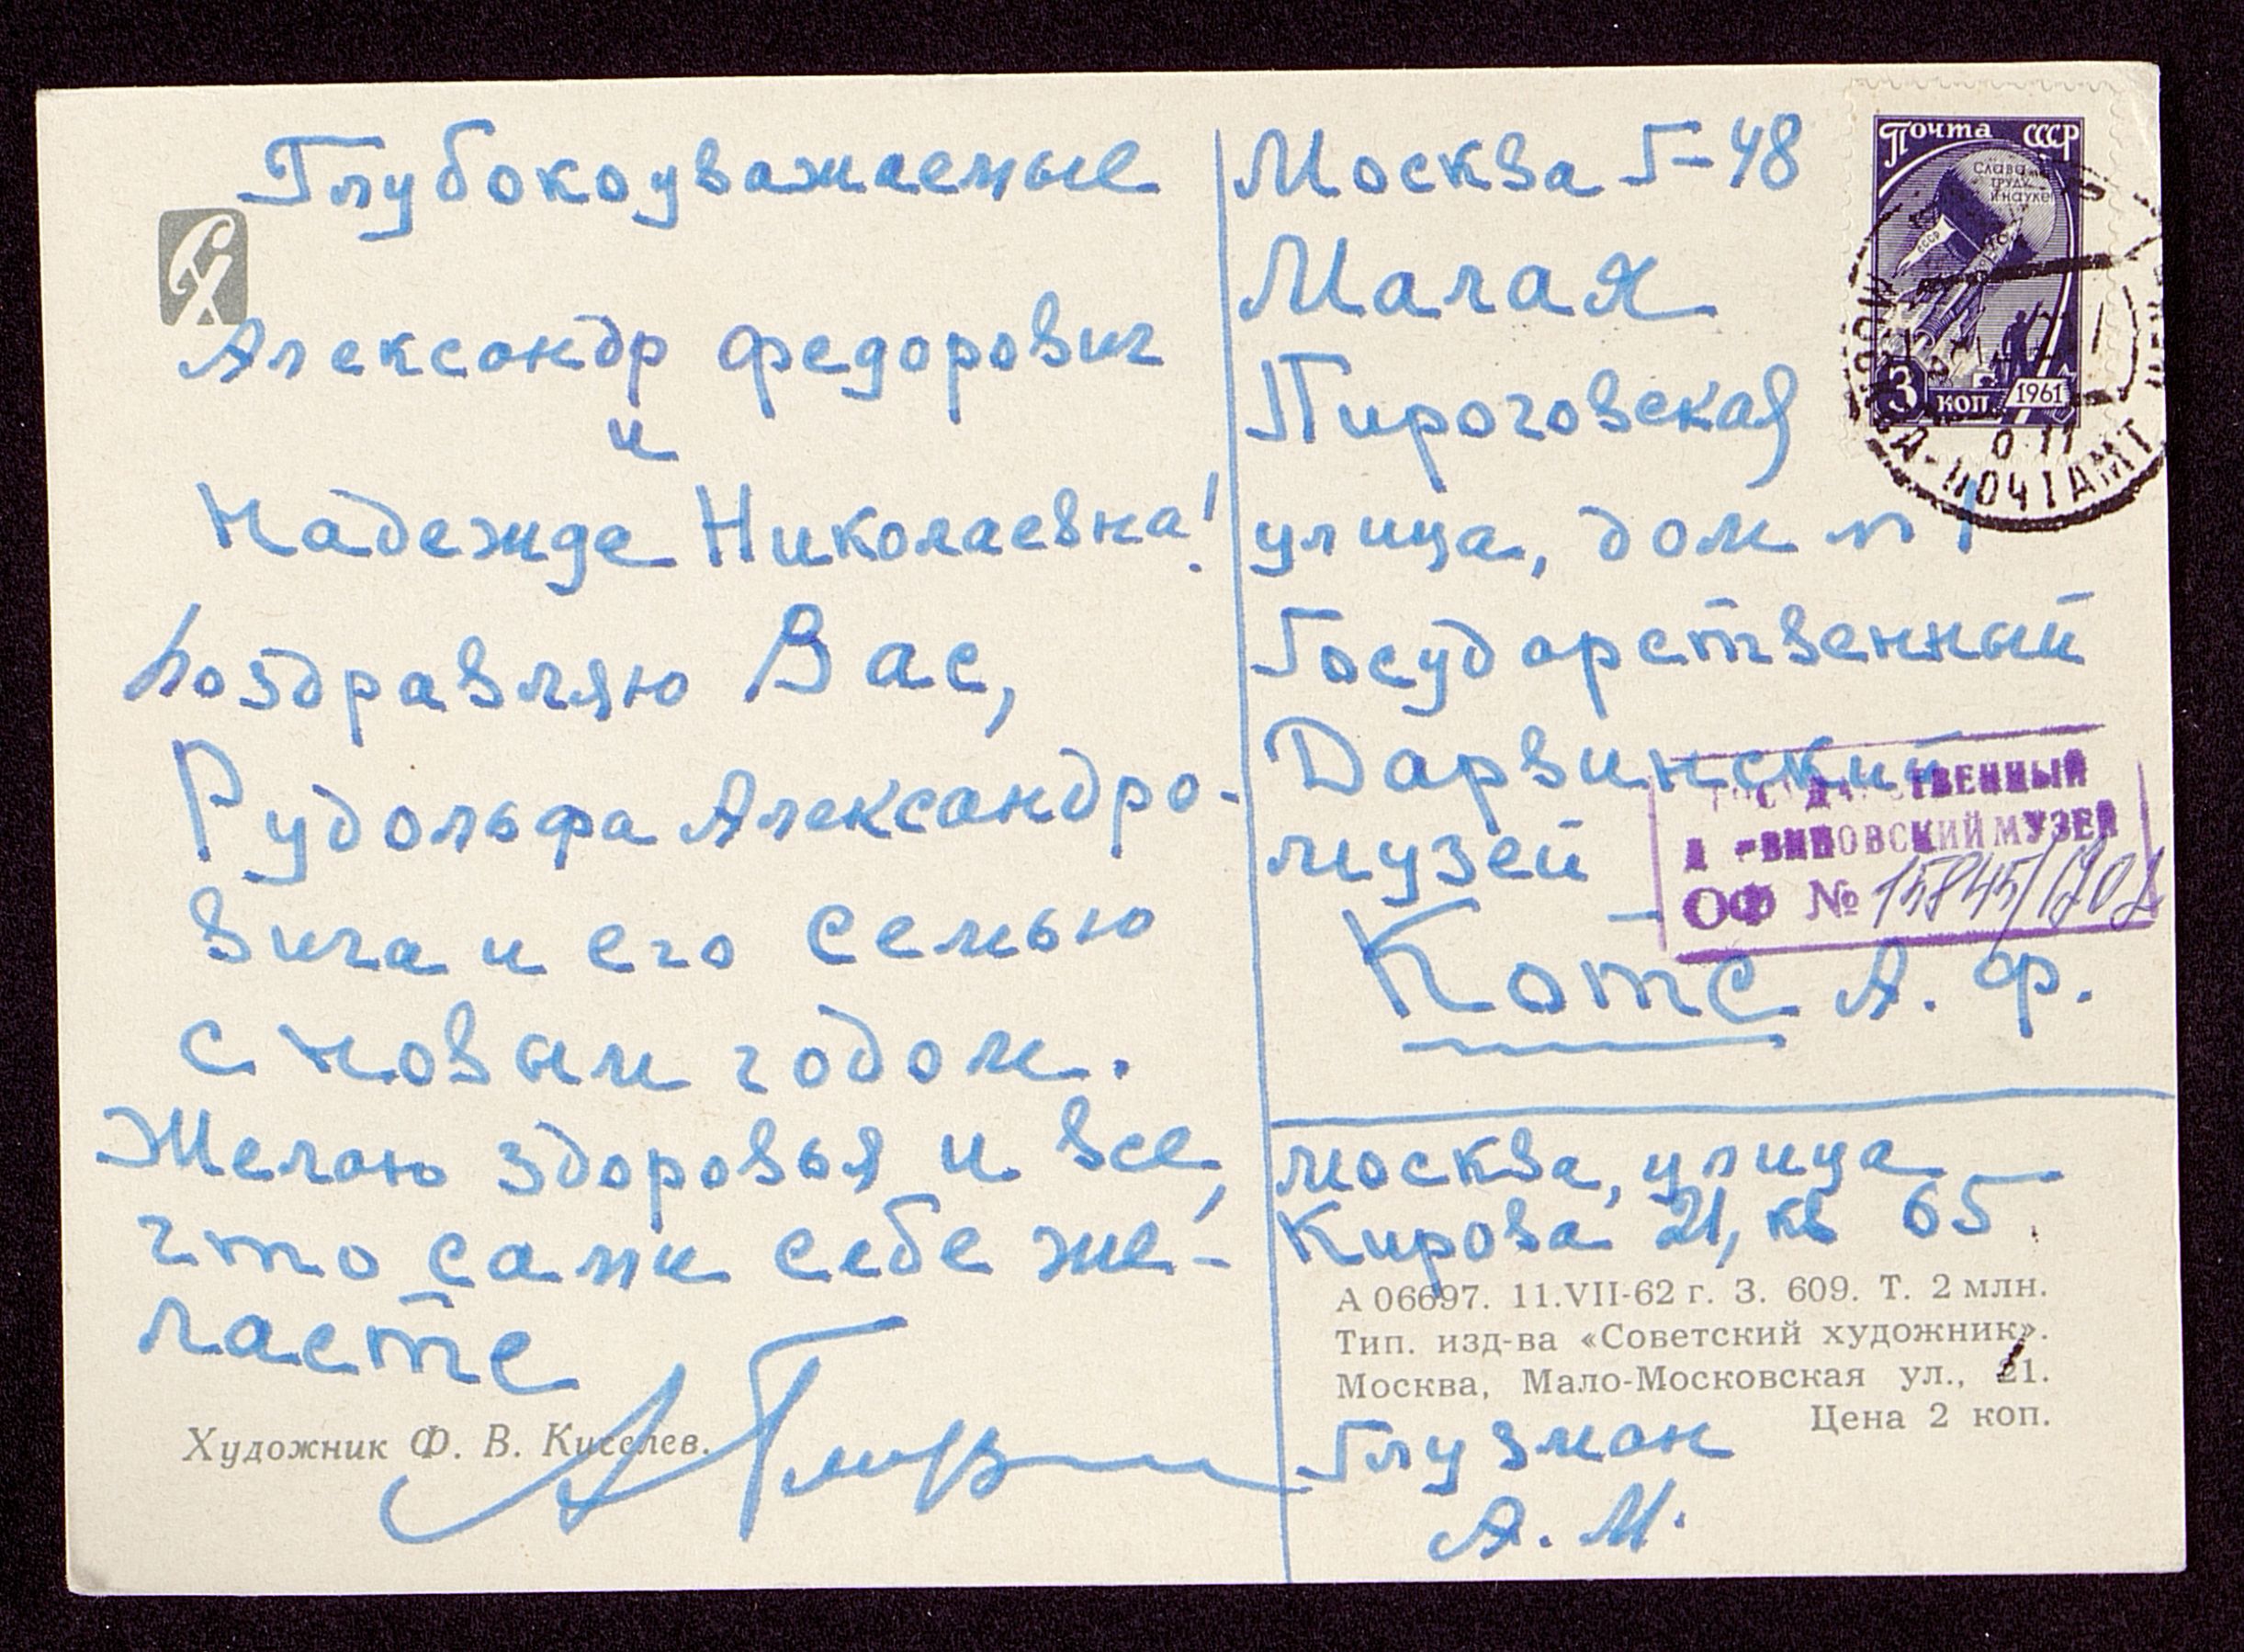 Глубокоуважаемые
Александр Федорович
и
Надежде Николаевна!
Поздравляю Вас,
Рудольфа Александро-
вича и его семью
с новым годом.
Желаю здоровья и все,
что сами себе же-
лаете
Художник Ф. В. Киселев.
Москва Г-48
Малая
Пироговская
улица, дом № 1
Государственный
Дарвинский
музей
Котс А. Ф.
Почта СССР
Слава
труду
и науке
СССР
3 коп. 1961
ПОЧТАМТ
ГОСУДАРСТВЕННЫЙ
ДАРВИНОВСКИЙ МУЗЕЙ
ОФ № 15845/1702
Москва, улица
Кирова 21, кв 65.
А 06697. 11.VII-62 г. З. 609. Т. 2 млн.
Тип. изд-ва «Советский художник».
Москва, Мало-Московская ул., 21.
Цена 2 коп.
Глузман
А. М.